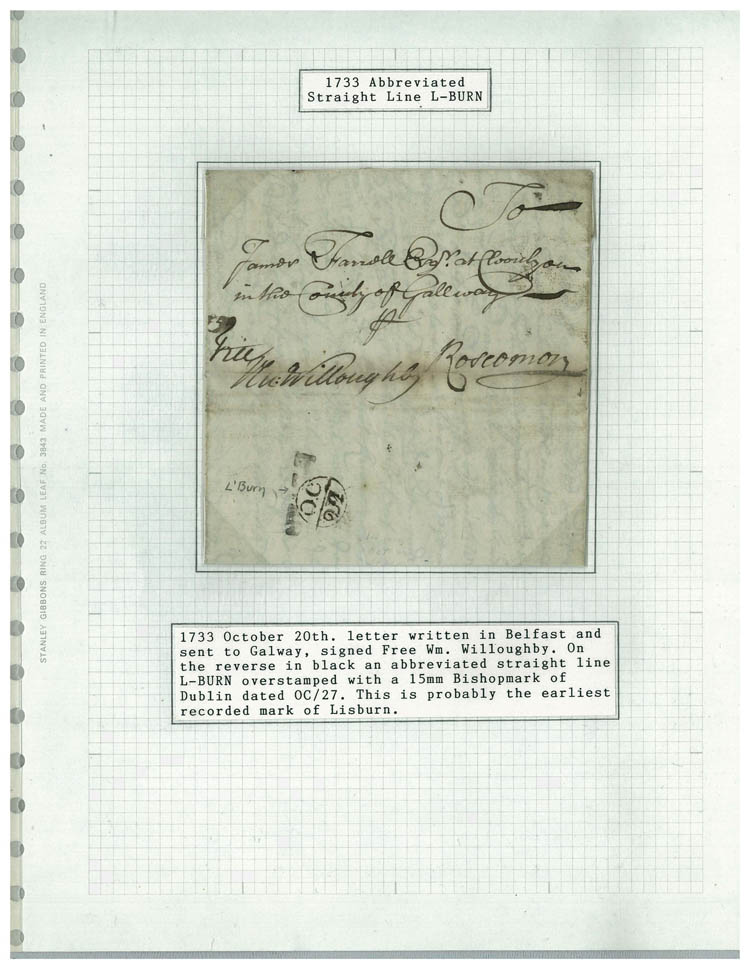 1733 Abbreviated
Straight Line L-BURN
To
James Farrell Esqr. at
in the County of Gallway
Willoughby Roscomon
L'Burn
OC
1733 October 20th. letter written in Belfast and
sent to Galway, signed Free Wm. Willoughby. On
the reverse in black an abbreviated straight line
L-BURN overstamped with a 15mm Bishopmark of
Dublin dated OC/27. This is probably the earliest
recorded mark of Lisburn.
STANLEY GIBBONS RING 22 ALBUM LEAF No. 3843 MADE AND PRINTED IN ENGLAND